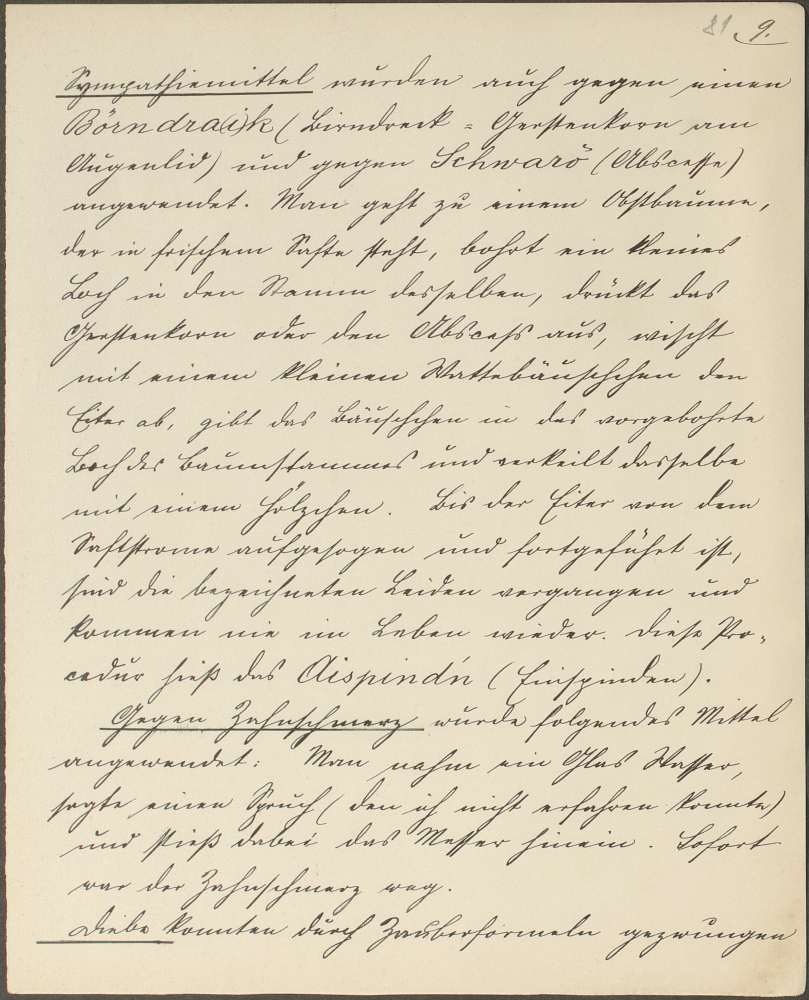 81 9.
Sympathiemittel wurden auch gegen einen
Börndra(i)k (Birndreck = Gerstenkorn am
Augenlid) und gegen Schwarö (Abscesse)
angewendet. Man geht zu einem Obstbaume,
der in frischem Safte steht, bohrt ein kleines
Loch in den Stamm desselben, drückt das
Gerstenkorn oder den Abscess aus, wischt
mit einem kleinen Wattebäuschchen den
Eiter ab, gibt das Bäuschchen in das vorgebohrte
Loch des Baumstammes und verkeilt dasselbe
mit einem Hölzchen. Bis der Eiter von dem
Saftstrome aufgesogen und fortgeführt ist,
sind die bezeichneten Leiden vergangen und
kommen nie im Leben wieder. Diese Pro-
cedur hieß das Aispindn (Einspinden).
Gegen Zahnschmerz wurde folgendes Mittel
angewendet: Man nahm ein Glas Wasser,
sagte einen Spruch (den ich nicht erfahren konnte)
und stieß dabei das Messer hinein. Sofort
war der Zahnschmerz weg.
Diebe konnten durch Zauberformeln gezwungen